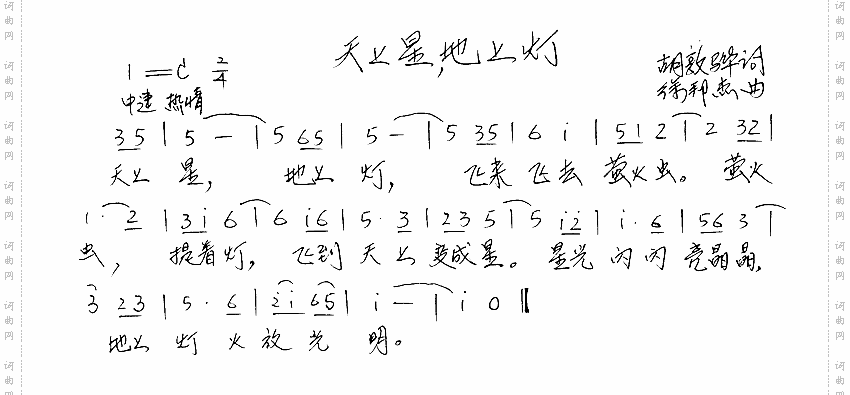 天上星,地上灯
1=C 2/4
胡敦骅词
中速 热情
徐邦杰曲
35 | 5 — | 5 65 | 5 — | 5 35 | 6 i | 51 2 | 2 32 |
天上 星, 地上 灯, 飞来 飞去 萤火虫。 萤火
1· 2 | 3i 6 | 6 i6 | 5· 3 | 23 5 | 5 i2 | i· 6 | 56 3 |
虫, 提着灯, 飞到 天上 变成星。 星光 闪闪 亮晶晶,
3 23 | 5· 6 | 2i 65 | i — | i 0 ‖
地上 灯 火 放 光 明。
词曲网